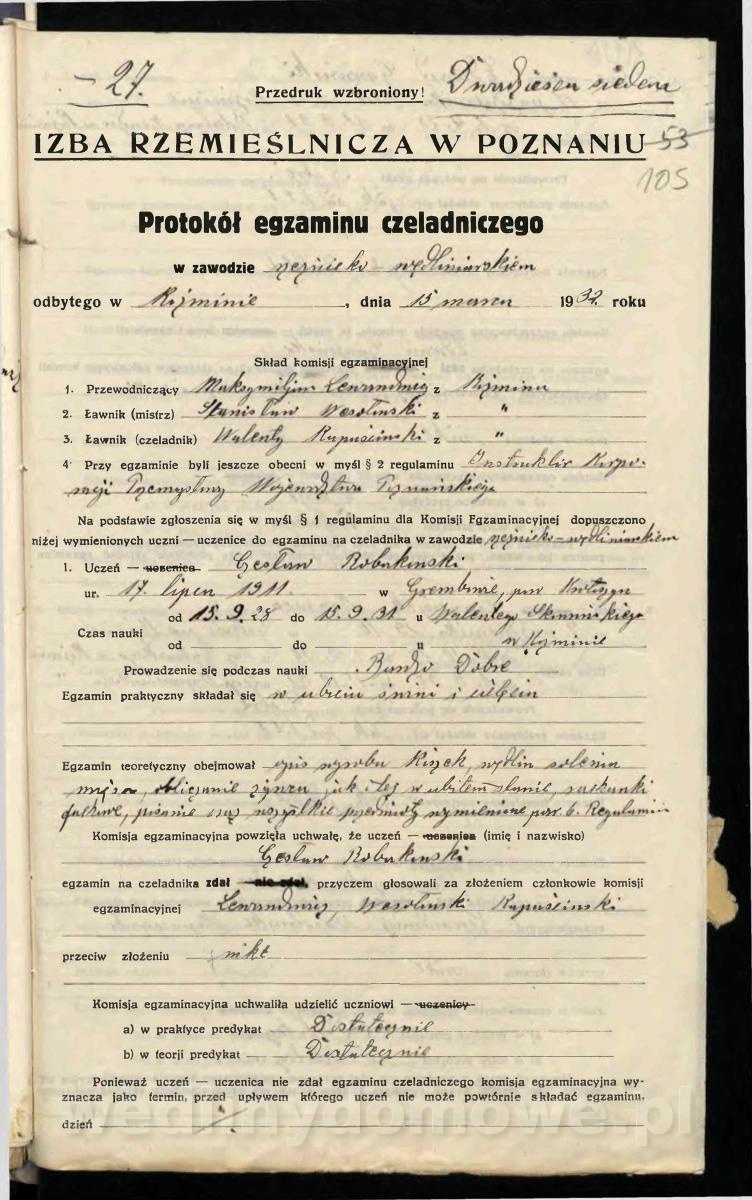 – 27.
Przedruk wzbroniony!
Dwadzieścia siedem
IZBA RZEMIEŚLNICZA W POZNANIU
53
105
Protokół egzaminu czeladniczego
w zawodzie rzeźnicko – wędliniarskiem
odbytego w Koźminie, dnia 15 marca 1932 roku
Skład komisji egzaminacyjnej
1. Przewodniczący Maksymiljan Lewandowicz z Koźmina
2. Ławnik (mistrz) Stanisław Wesołowski z "
3. Ławnik (czeladnik) Walenty Rapuściński z "
4. Przy egzaminie byli jeszcze obecni w myśl § 2 regulaminu Instruktor Korpo-
racji Przemysłowej Województwa Poznańskiego
Na podstawie zgłoszenia się w myśl § 1 regulaminu dla Komisji Egzaminacyjnej dopuszczono
niżej wymienionych uczni — uczenice do egzaminu na czeladnika w zawodzie rzeźnicko – wędliniarskiem
1. Uczeń — uczenica Czesław Robakowski
ur. 17 lipca 1911 w Grembowie, pow Krotoszyn
od 15.9.28 do 15.9.31 u Walentego
Czas nauki
od do u w Koźminie
Prowadzenie się podczas nauki Bardzo Dobre
Egzamin praktyczny składał się w ubiciu świni i cielęcia
Egzamin teoretyczny obejmował opis wyrobu kiszek, wędlin solenia
mięsa, obliczanie żywca jak i też w ubitem stanie, rachunki
fachowe, pisanie oraz wszystkie przedmioty wymienione par. 6. Regulaminu
Komisja egzaminacyjna powzięła uchwałę, że uczeń — uczenica (imię i nazwisko)
Czesław Robakowski
egzamin na czeladnika zdał — nie zdał, przyczem głosowali za złożeniem członkowie komisji
egzaminacyjnej Lewandowicz, Wesołowski Rapuściński
przeciw złożeniu nikt
Komisja egzaminacyjna uchwaliła udzielić uczniowi — uczenicy
a) w praktyce predykat Dostatecznie
b) w teorji predykat Dostatecznie
Ponieważ uczeń — uczenica nie zdał egzaminu czeladniczego komisja egzaminacyjna wy-
znacza jako termin, przed upływem którego uczeń nie może powtórnie składać egzaminu,
dzień
wedlinydomowe.pl